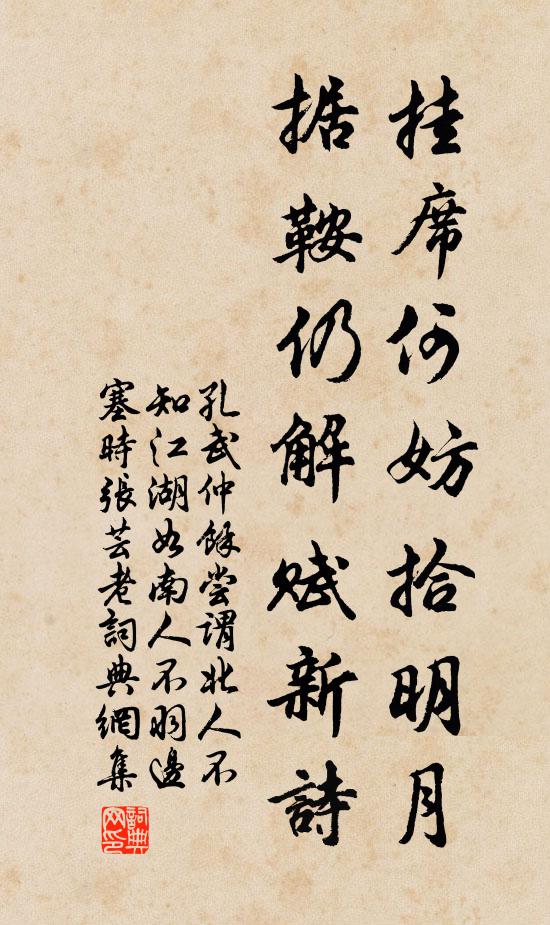 挂席何妨拾明月
据鞍仍解赋新詩
孔武仲餘嘗謂北人不
知江湖如南人不羽邊
塞時張芸老詞典網集
詞典网印